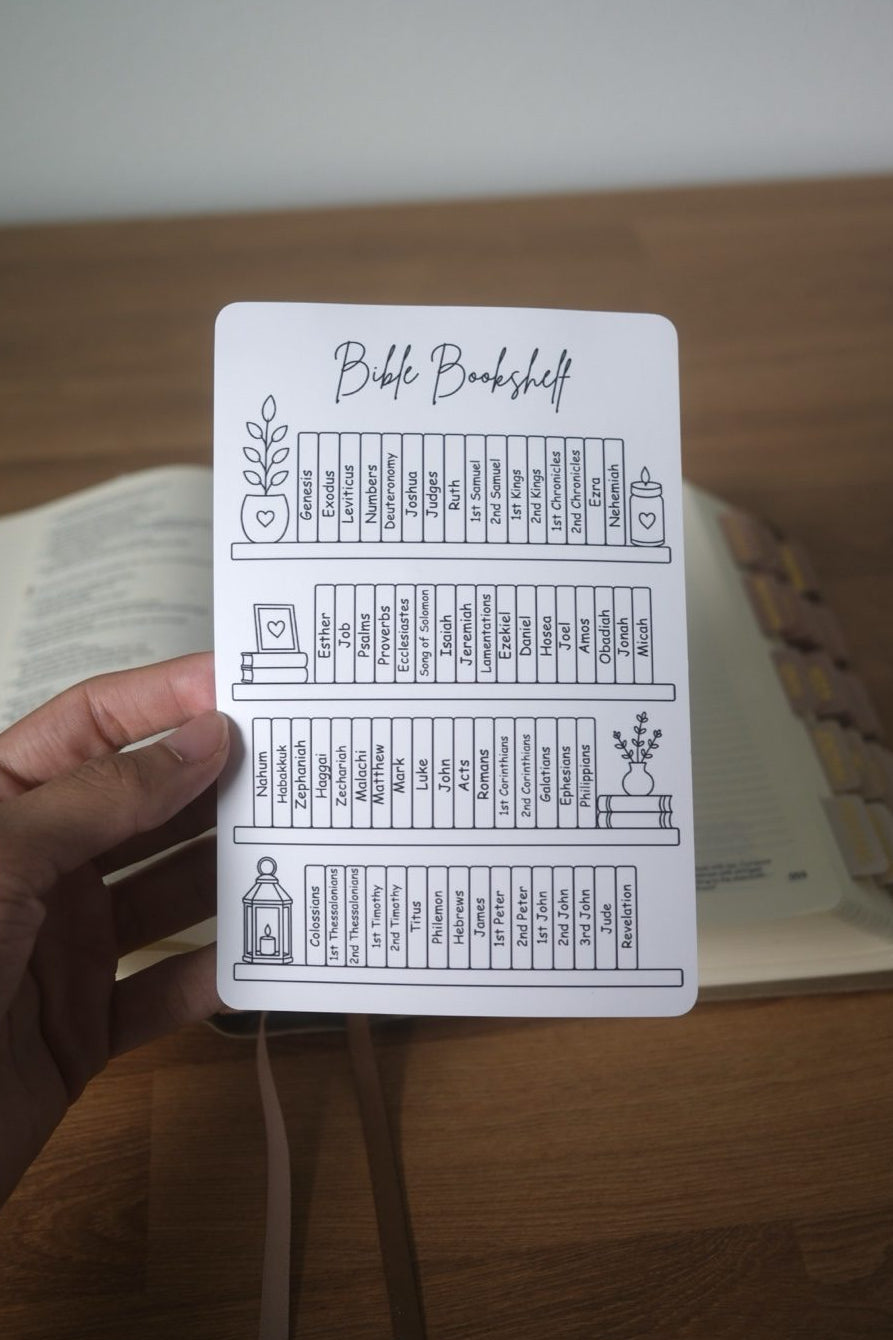 Bible Bookshelf
Genesis
Exodus
Leviticus
Numbers
Deuteronomy
Joshua
Judges
Ruth
1st Samuel
2nd Samuel
1st Kings
2nd Kings
1st Chronicles
2nd Chronicles
Ezra
Nehemiah
Esther
Job
Psalms
Proverbs
Ecclesiastes
Song of Solomon
Isaiah
Jeremiah
Lamentations
Ezekiel
Daniel
Hosea
Joel
Amos
Obadiah
Jonah
Micah
Nahum
Habakkuk
Zephaniah
Haggai
Zechariah
Malachi
Matthew
Mark
Luke
John
Acts
Romans
1st Corinthians
2nd Corinthians
Galatians
Ephesians
Philippians
Colossians
1st Thessalonians
2nd Thessalonians
1st Timothy
2nd Timothy
Titus
Philemon
Hebrews
James
1st Peter
2nd Peter
1st John
2nd John
3rd John
Jude
Revelation